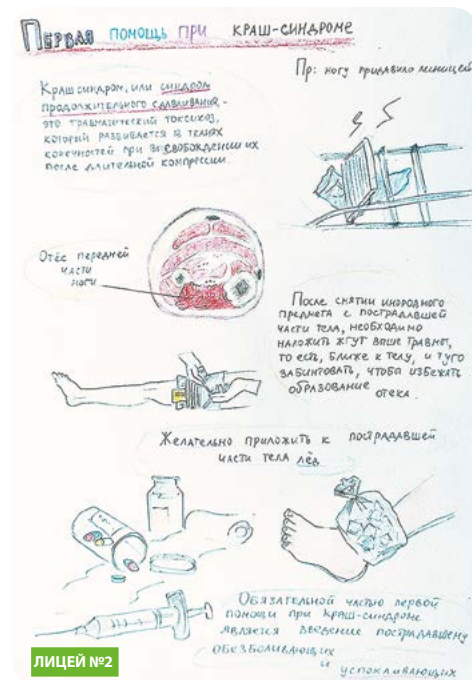 Первая помощь при краш-синдроме
Пр: ногу придавило лесницей
Краш синдром, или синдром
продолжительного сдавливания -
это травматический токсикоз,
который развивается в тканях
конечностей при высвобождении их
после длительной компрессии.
Отёс передней
части
ноги
После снятии инородного
предмета с пострадавшей
части тела, необходимо
наложить жгут выше травмы,
то есть, ближе к телу, и туго
забинтовать, чтобы избежать
образование
отека.
Желательно приложить к пострадавшей
части тела лёд
Обязательной частью первой
помощи при краш-синдроме
является введение пострадавшему
обезболивающих
и успокаивающих
ЛИЦЕЙ №2